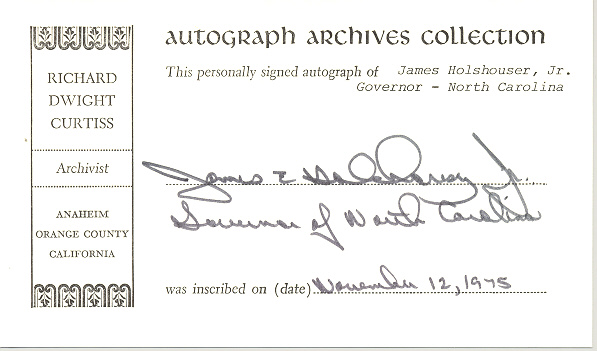 RICHARD
DWIGHT
CURTISS
Archivist
ANAHEIM
ORANGE COUNTY
CALIFORNIA
AUTOGRAPH ARCHIVES COLLECTION
This personally signed autograph of James Holshouser, Jr.
Governor - North Carolina
James E Holshouser Jr.
Governor of North Carolina
was inscribed on (date) November 12, 1975